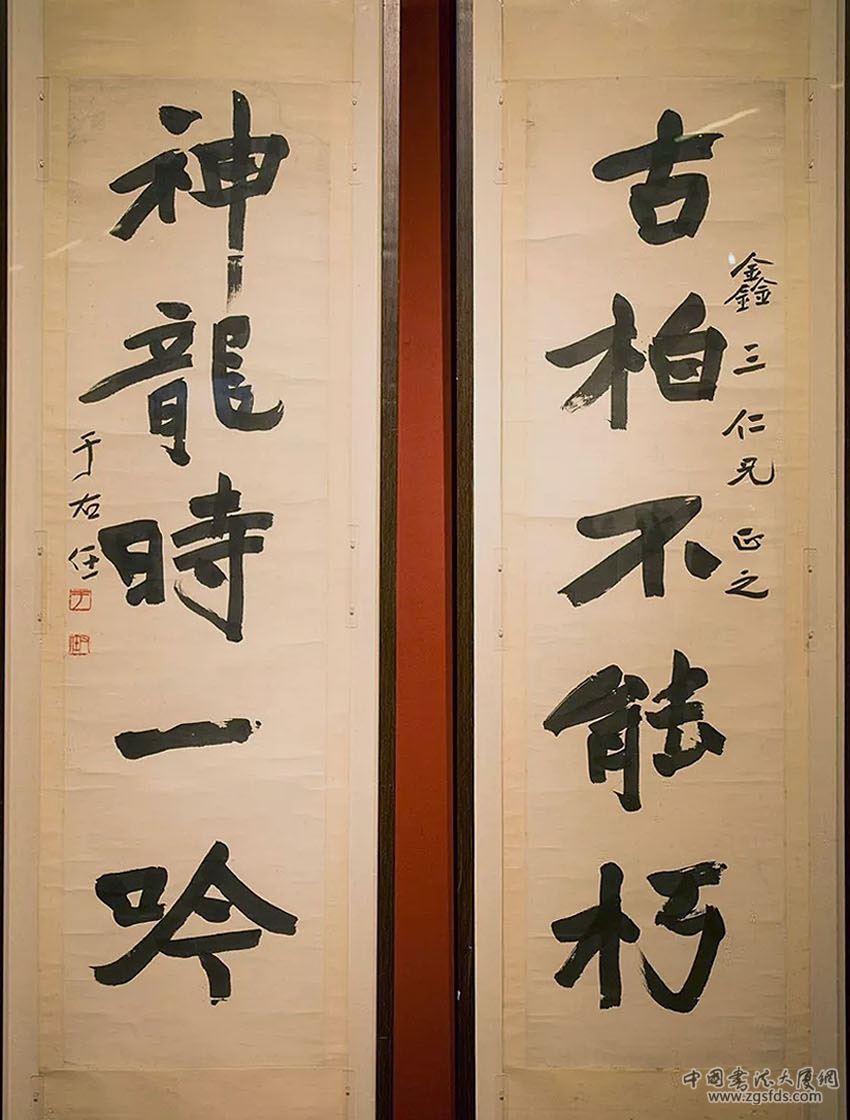 古柏不能朽
鑫三仁兄正之
神龍時一吟
于右任
中国書法大厦網
www.zgsfds.com